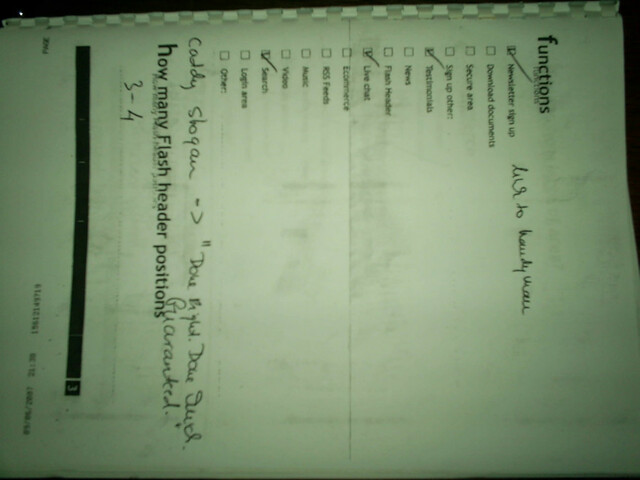 functions
Newsletter sign up
Download documents
Secure area
Sign up other:
Testimonials
News
Flash Header
Live chat
Ecommerce
RSS Feeds
Music
Video
Search
Login area
Other:
to handyman
Caddy Slogan -> "Done Right. Done Quick.
Guaranteed."
how many Flash header positions
3-4
3